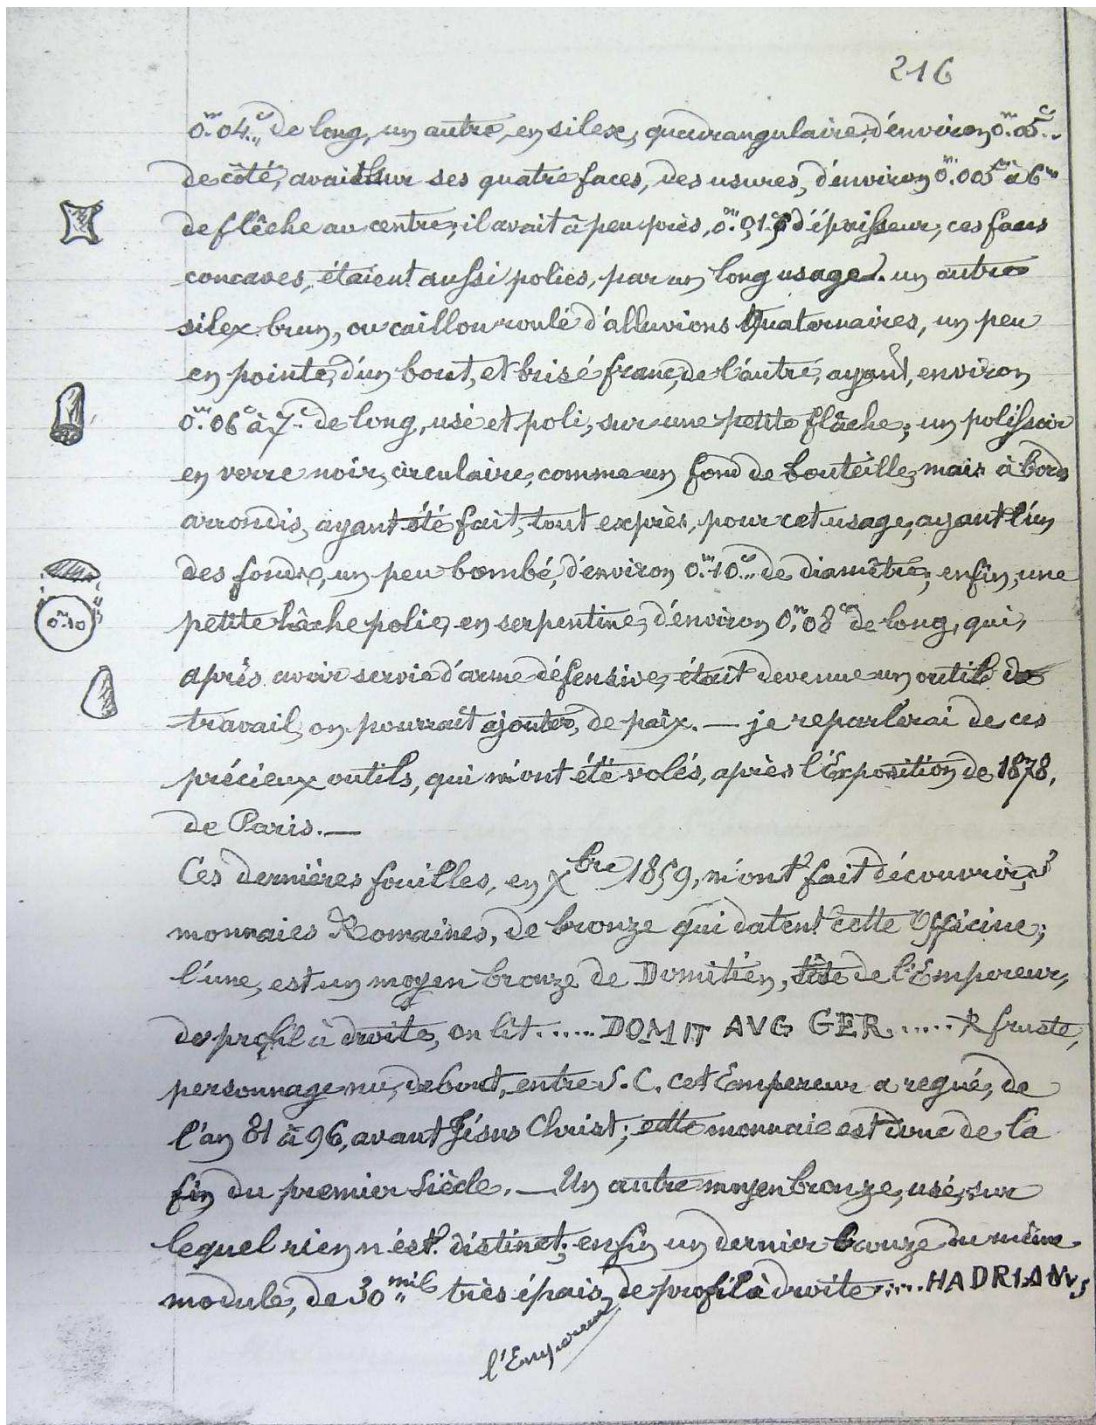 216
0.m 04.c de long, un autre, en silex, quadrangulaire, d'environ 0.m 05.c
de côté, avait sur ses quatre faces, des usures, d'environ 0.m 005 à 6m
de flêche au centre; il avait à peu près, 0.m d'épaisseur, ces faces
concaves, étaient aussi polies, par un long usage. un autre
silex brun, ou caillou roulé d'alluvions Quaternaires, un peu
en pointe, d'un bout, et brisé franc, de l'autre, ayant, environ
0.m 06c à 7.c de long, usé et poli, sur une petite flâche; un polissoir
en verre noir, circulaire, comme un fond de bouteille, mais à bords
arrondis, ayant été fait, tout exprès, pour cet usage, ayant l'un
des fonds, un peu bombé, d'environ 0.m 10.c de diamètre; enfin, une
0.m 10
petite hâche polie, en serpentine, d'environ 0.m 08c de long, qui,
après avoir servie d'arme défensive, était devenue un outil de
travail, on pourrait ajouter, de paix. — je reparlerai de ces
précieux outils, qui m'ont été volés, après l'Exposition de 1878,
de Paris. —
Ces dernières fouilles, en Xbre 1859, m'ont fait découvrir, 3
monnaies Romaines, de bronze qui datent cette Officine;
l'une, est un moyen bronze de Domitien, tête de l'Empereur,
de profil à droite, on lit ..... DOMIT AVG GER ..... R fruste,
personnage nu, debout, entre S. C. cet Empereur a regné, de
l'an 81 à 96, avant Jésus Christ; cette monnaie est donc de la
fin du premier Siècle. — Un autre moyen bronze, usé, sur
lequel rien n'est distinct; enfin un dernier bronze du même
module, de 30 mil très épais, de profil à droite ..... HADRIANVS
l'Empereur